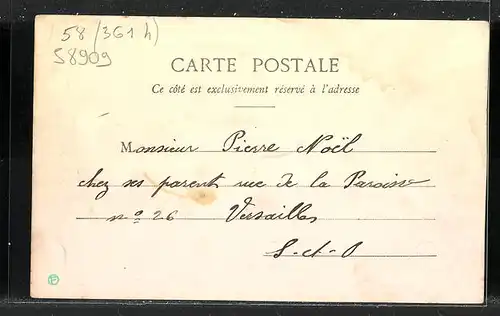 58 (361 h)
58909
CARTE POSTALE
Ce côté est exclusivement réservé à l'adresse
Monsieur Pierre Noël
chez ses parent rue de la Paroisse
nº 26 Versailles
S-et-O